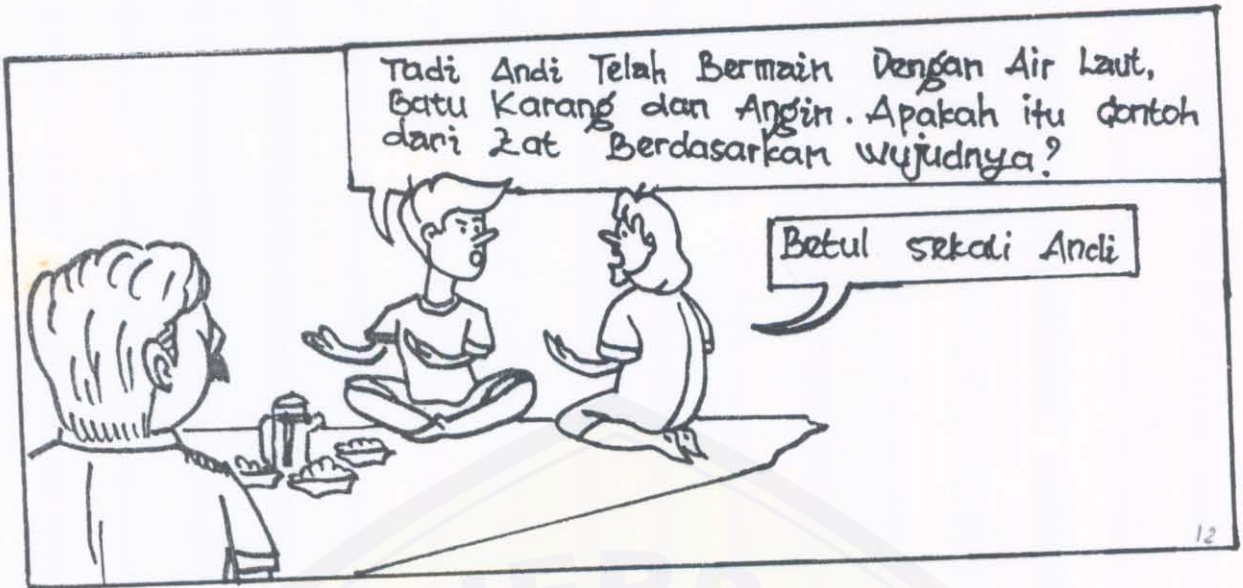 Tadi Andi Telah Bermain Dengan Air Laut,
Batu Karang dan Angin. Apakah itu Contoh
dari Zat Berdasarkan wujudnya?
Betul sekali Andi
12